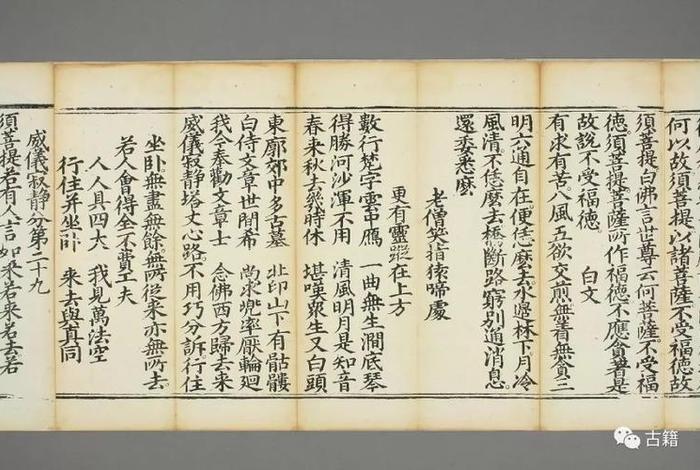 何以故須菩提以諸菩薩不受福德故
須菩提白佛言世尊云何菩薩不受福
德須菩提菩薩所作福德不應貪著是
故說不受福德 白文
有求有苦八風五欲交煎無著無貪三
明六通自在便恁麼去水邊林下月冷
風清不恁麼去橋斷路窮別通消息
還委悉麼
老僧笑指猿啼處
更有靈蹤在上方
數行梵字雲中鴈 一曲無生澗底琴
得勝河沙渾不用 清風明月是知音
春來秋去幾時休 堪嘆衆生又白頭
東廓郊中多古墓 北印山下有骷髏
白侍文章世間希 尚求兜率厭輪迴
我今奉勸文章士 念佛西方歸去來
威儀寂静塔丈心路不用巧分訴行住
坐卧無晝無餘無所從來亦無所去
若人會得全不費工夫
人人具四大 我見萬法空
行住并坐卧 來去與真同
威儀寂静分第二十九
須菩提若有人言如來若來若去若
古籍